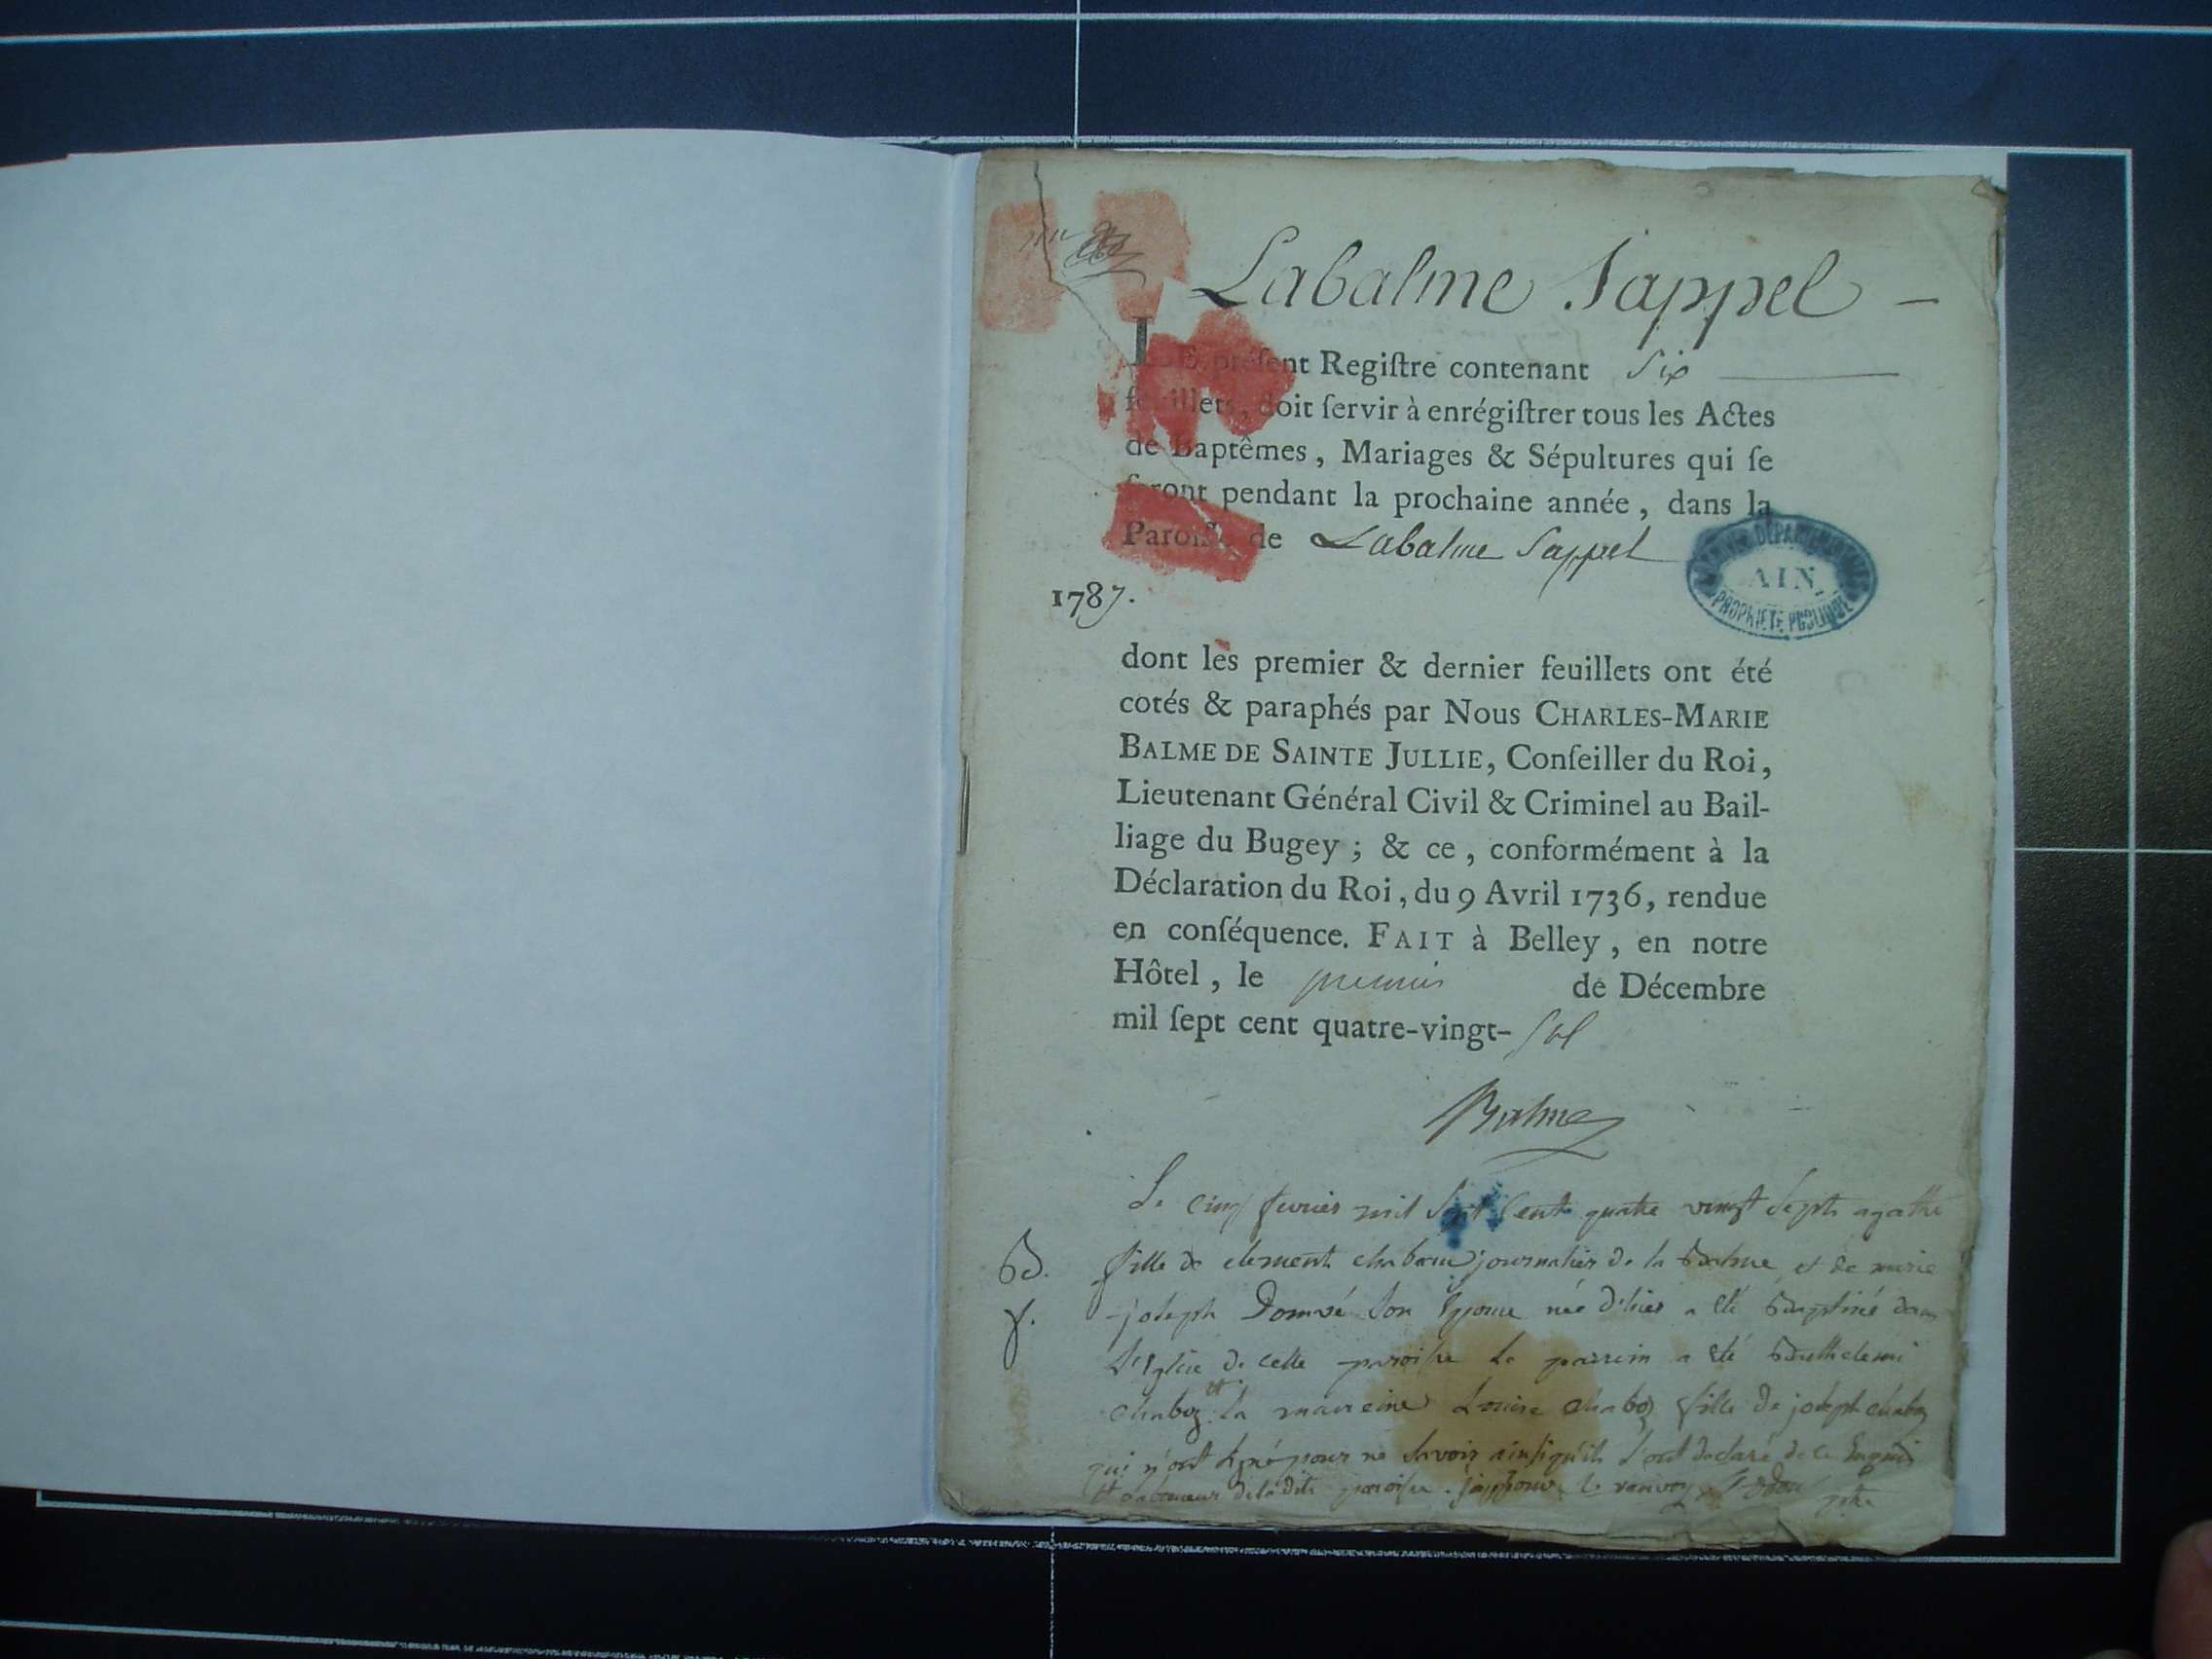 Labalme Sappel –
LE préſent Regiſtre contenant Six
feuillets, doit ſervir à enrégiſtrer tous les Actes
de Baptêmes, Mariages & Sépultures qui ſe
feront pendant la prochaine année, dans la
Paroiſſe de Labalme Sappel
ARCHIVES DÉPARTEMENTALES
AIN
PROPRIÉTÉ PUBLIQUE
1787.
dont les premier & dernier feuillets ont été
cotés & paraphés par Nous CHARLES-MARIE
BALME DE SAINTE JULLIE, Conſeiller du Roi,
Lieutenant Général Civil & Criminel au Bail-
liage du Bugey ; & ce, conformément à la
Déclaration du Roi, du 9 Avril 1736, rendue
en conſéquence. FAIT à Belley, en notre
Hôtel, le premier de Décembre
mil ſept cent quatre-vingt-
Balme
Le cinq fevrier mil Sept Cent quatre vingt Sept agathe
B. fille de clement journalier de la Balme et de marie
f. joseph son Epouse née d'hier a été Baptisé dans
L'Eglise de cette paroisse Le parrein a été Barthelemi
Chaboz et la marreine Louise Chaboz fille de joseph Chaboz
qui n'ont signé pour ne savoir ainsi qu'ils l'ont declaré de ce
de la dite paroisse. j'approuve le renvoy ptre